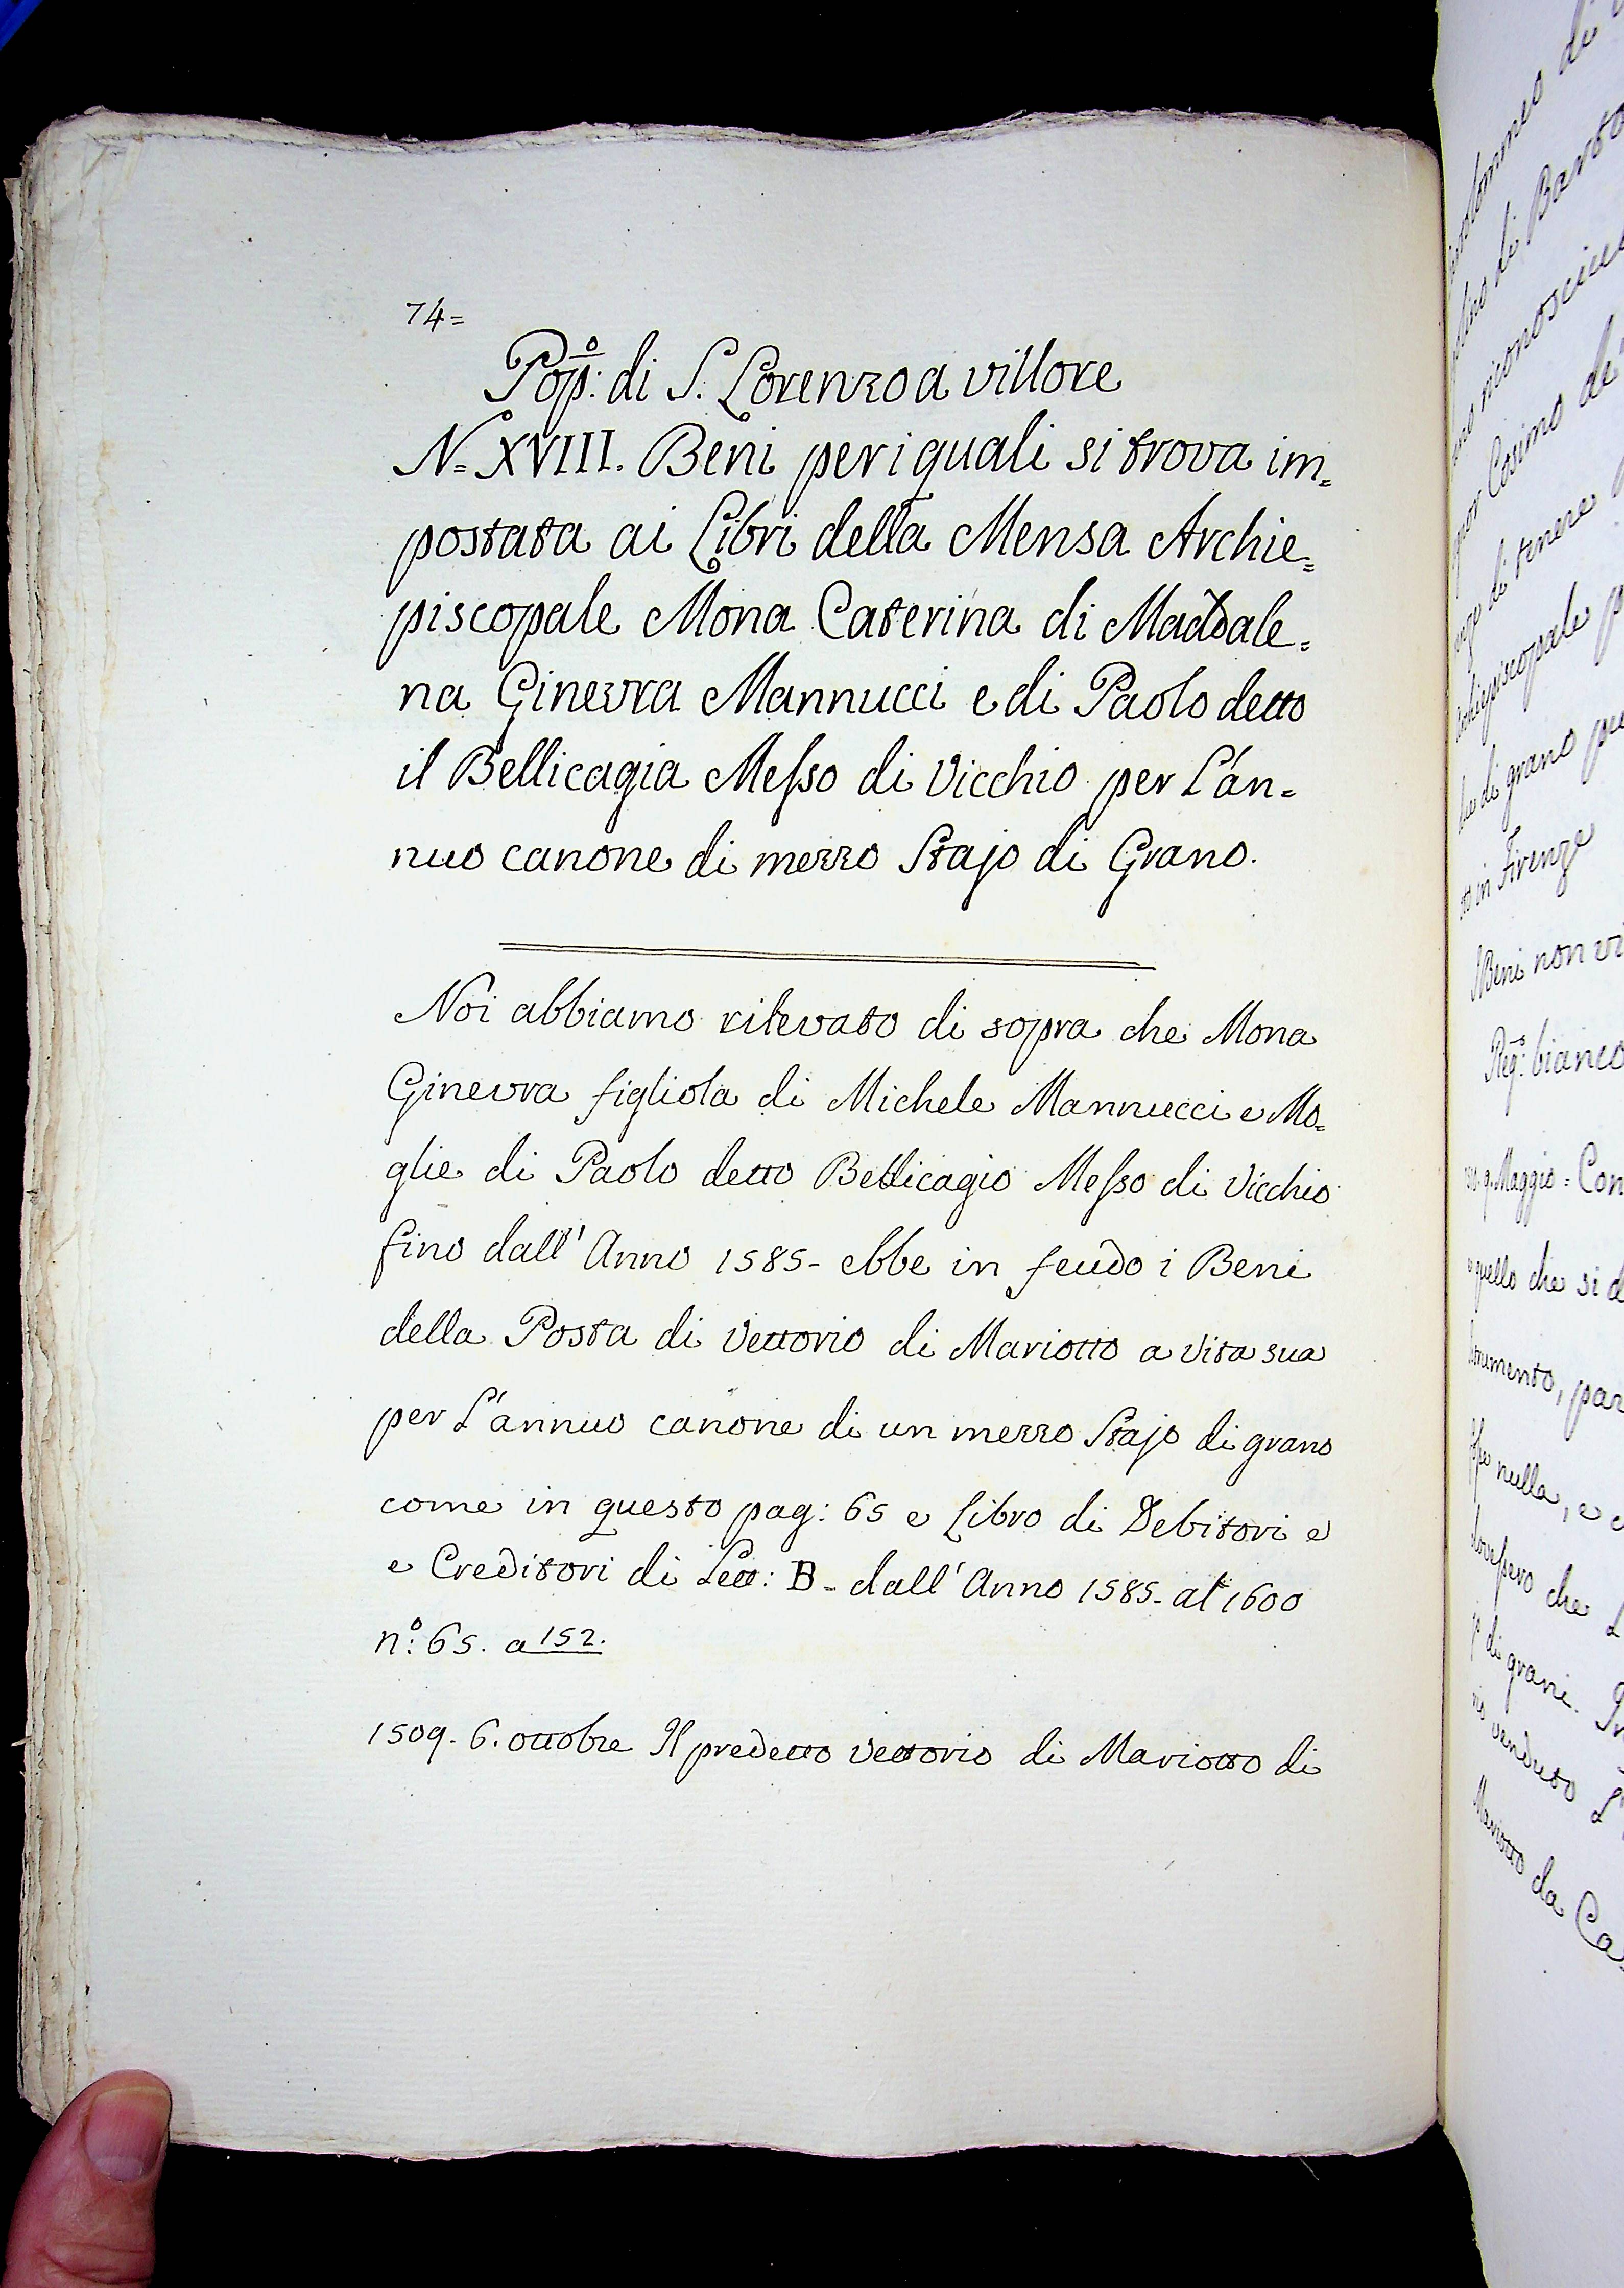 74=
Pop:º di S. Lorenzo a villore
Nº= XVIII. Beni per i quali si trova im=
postata ai Libri della Mensa Archie=
piscopale Mona Caterina di Maddale=
na Ginevra Mannucci e di Paolo detto
il Bellicagia Messo di Vicchio per L'an=
nuo canone di mezzo Stajo di Grano.
Noi abbiamo rilevato di sopra che Mona
Ginevra figliola di Michele Mannucci e Mo=
glie di Paolo detto Bellicagio Messo di Vicchio
fino dall' Anno 1585- ebbe in feudo i Beni
della Posta di Vettorio di Mariotto a vita sua
per L'annuo canone di un mezzo Stajo di grano
come in questo pag: 65 e Libro di Debitori e
e Creditori di Lett: B- dall' Anno 1585- al 1600
nº: 65. a 152.
1509- 6. ottobre Il predetto Vettorio di Mariotto di
di Barto
riconosciu
Cosimo de'
di tenere
di grano
in Firenze
Beni non vi
Reg:º bianco
9. Maggio = Con
quello che si d
nulla, e
che L
di grani.
venduto L'
Mariotto da Ca